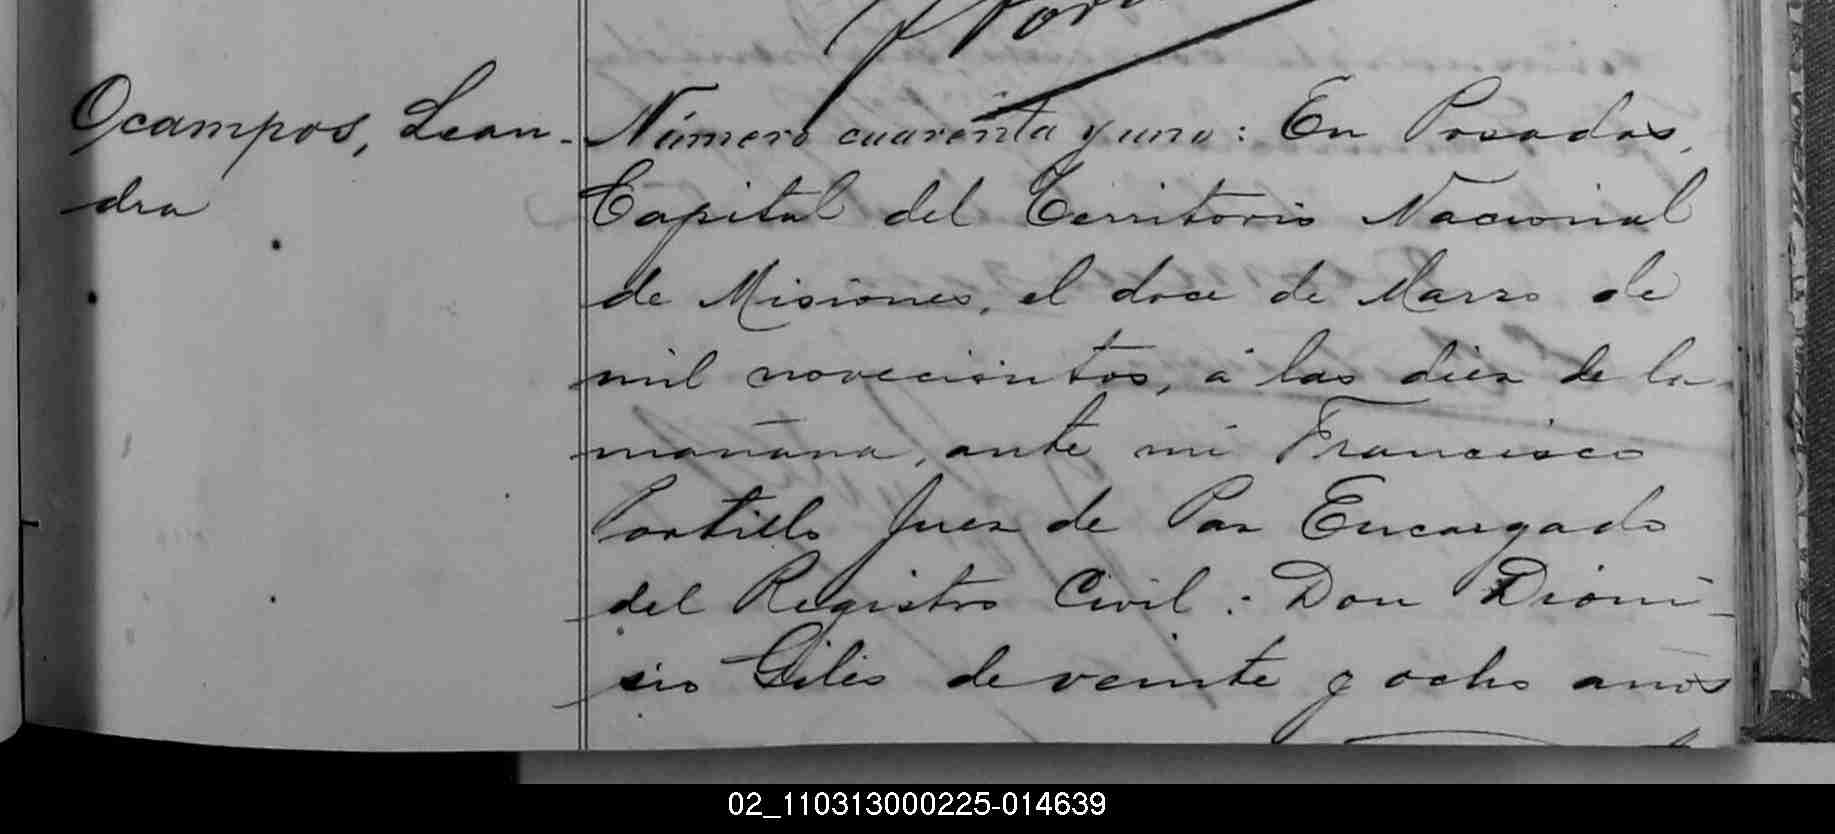 Ocampos, Lean-
dra
Número cuarenta y uno: En Posadas,
Capital del Territorio Nacional
de Misiones, el doce de Marzo de
mil novecientos, á las diez de la
mañana, ante mi Francisco
Portillo Juez de Paz Encargado
del Registro Civil: Don Dioni-
sio Gilis de veinte y ocho años
02_110313000225-014639